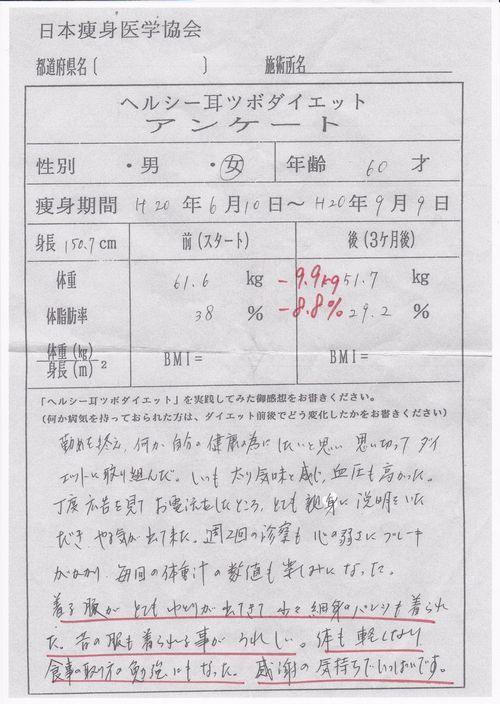 日本痩身医学協会
都道府県名〔 〕 施術所名
ヘルシー耳ツボダイエット
アンケート
性別 ・男 ・女 年齢 60 才
痩身期間 H20 年 6 月 10 日～ H20 年 9 月 9 日
身長 150.7 cm 前（スタート） 後（3ケ月後）
体重 61.6 kg -9.9kg 51.7 kg
体脂肪率 38 % -8.8% 29.2 %
体重（kg）
身長（m）2 BMI= BMI=
「ヘルシー耳ツボダイエット」を実践してみた御感想をお書きください。
（何か病気を持っておられた方は、ダイエット前後でどう変化したかをお書きください）
勤めを終え、何か自分の健康の為にしたいと思い 思い切ってダイ
エットに取り組んだ。いつも太り気味と感じ、血圧も高かった。
丁度広告を見て お電話をしたところ、とても親身に説明をいた
だき やる気が出て来た。週2回の診察も 心の弱さにブレーキ
がかかり 毎回の体重計の数値も楽しみになった。
着る服が とても ゆとりが出てきて 少々細身のパンツも着られ
た。昔の服も着られる事が うれしい。体も 軽くなり
食事の取り方の勉強にもなった。 感謝の気持ちでいっぱいです。